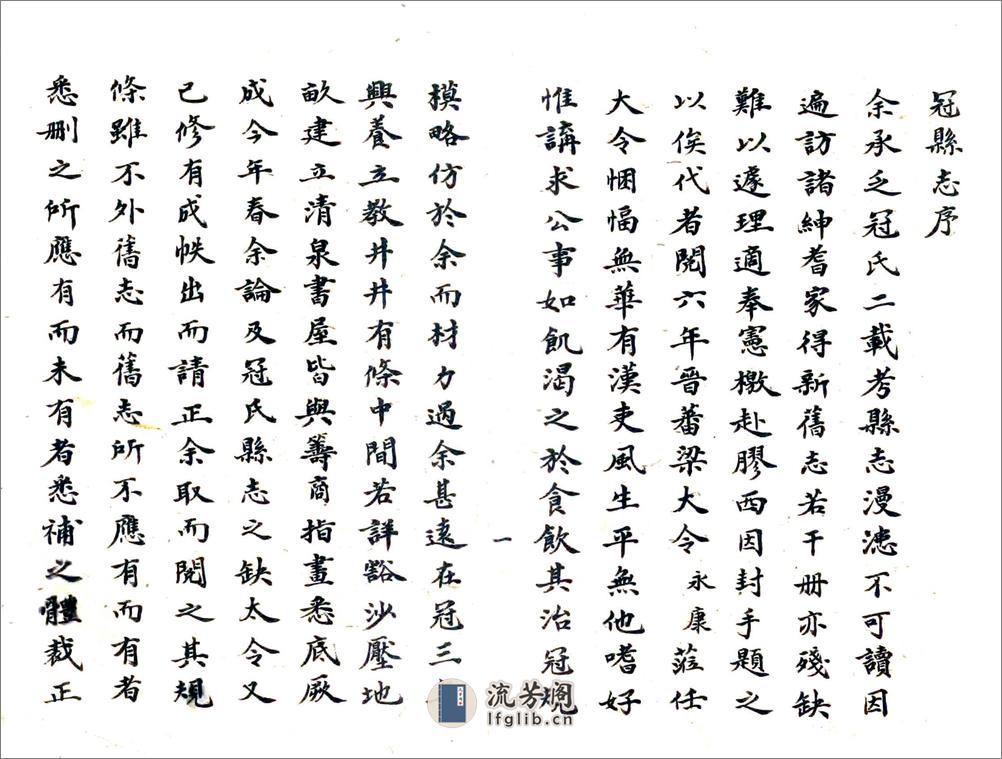 冠縣志序
余承乏冠氏二載考縣志漫漶不可讀因
遍訪諸紳耆家得新舊志若干册亦殘缺
難以遽理適奉憲檄赴膠西因封手題之
以俟代者閱六年晉蕃梁大令永康蒞任
大令悃愊無華有漢吏風生平無他嗜好
惟講求公事如飢渴之於食飲其治冠規
一
模略仿於余而材力過余甚遠在冠三
興養立教井井有條中間若詳豁沙壓地
畝建立清泉書屋皆與籌商指畫悉底厥
成今年春余論及冠氏縣志之缺太令又
已修有成帙出而請正余取而閱之其規
條雖不外舊志而舊志所不應有而有者
悉刪之所應有而未有者悉補之體裁正
流芳阁
lfglib.cn